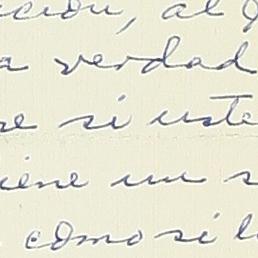 ción, al
verdad
si uste
iene un s
como si l